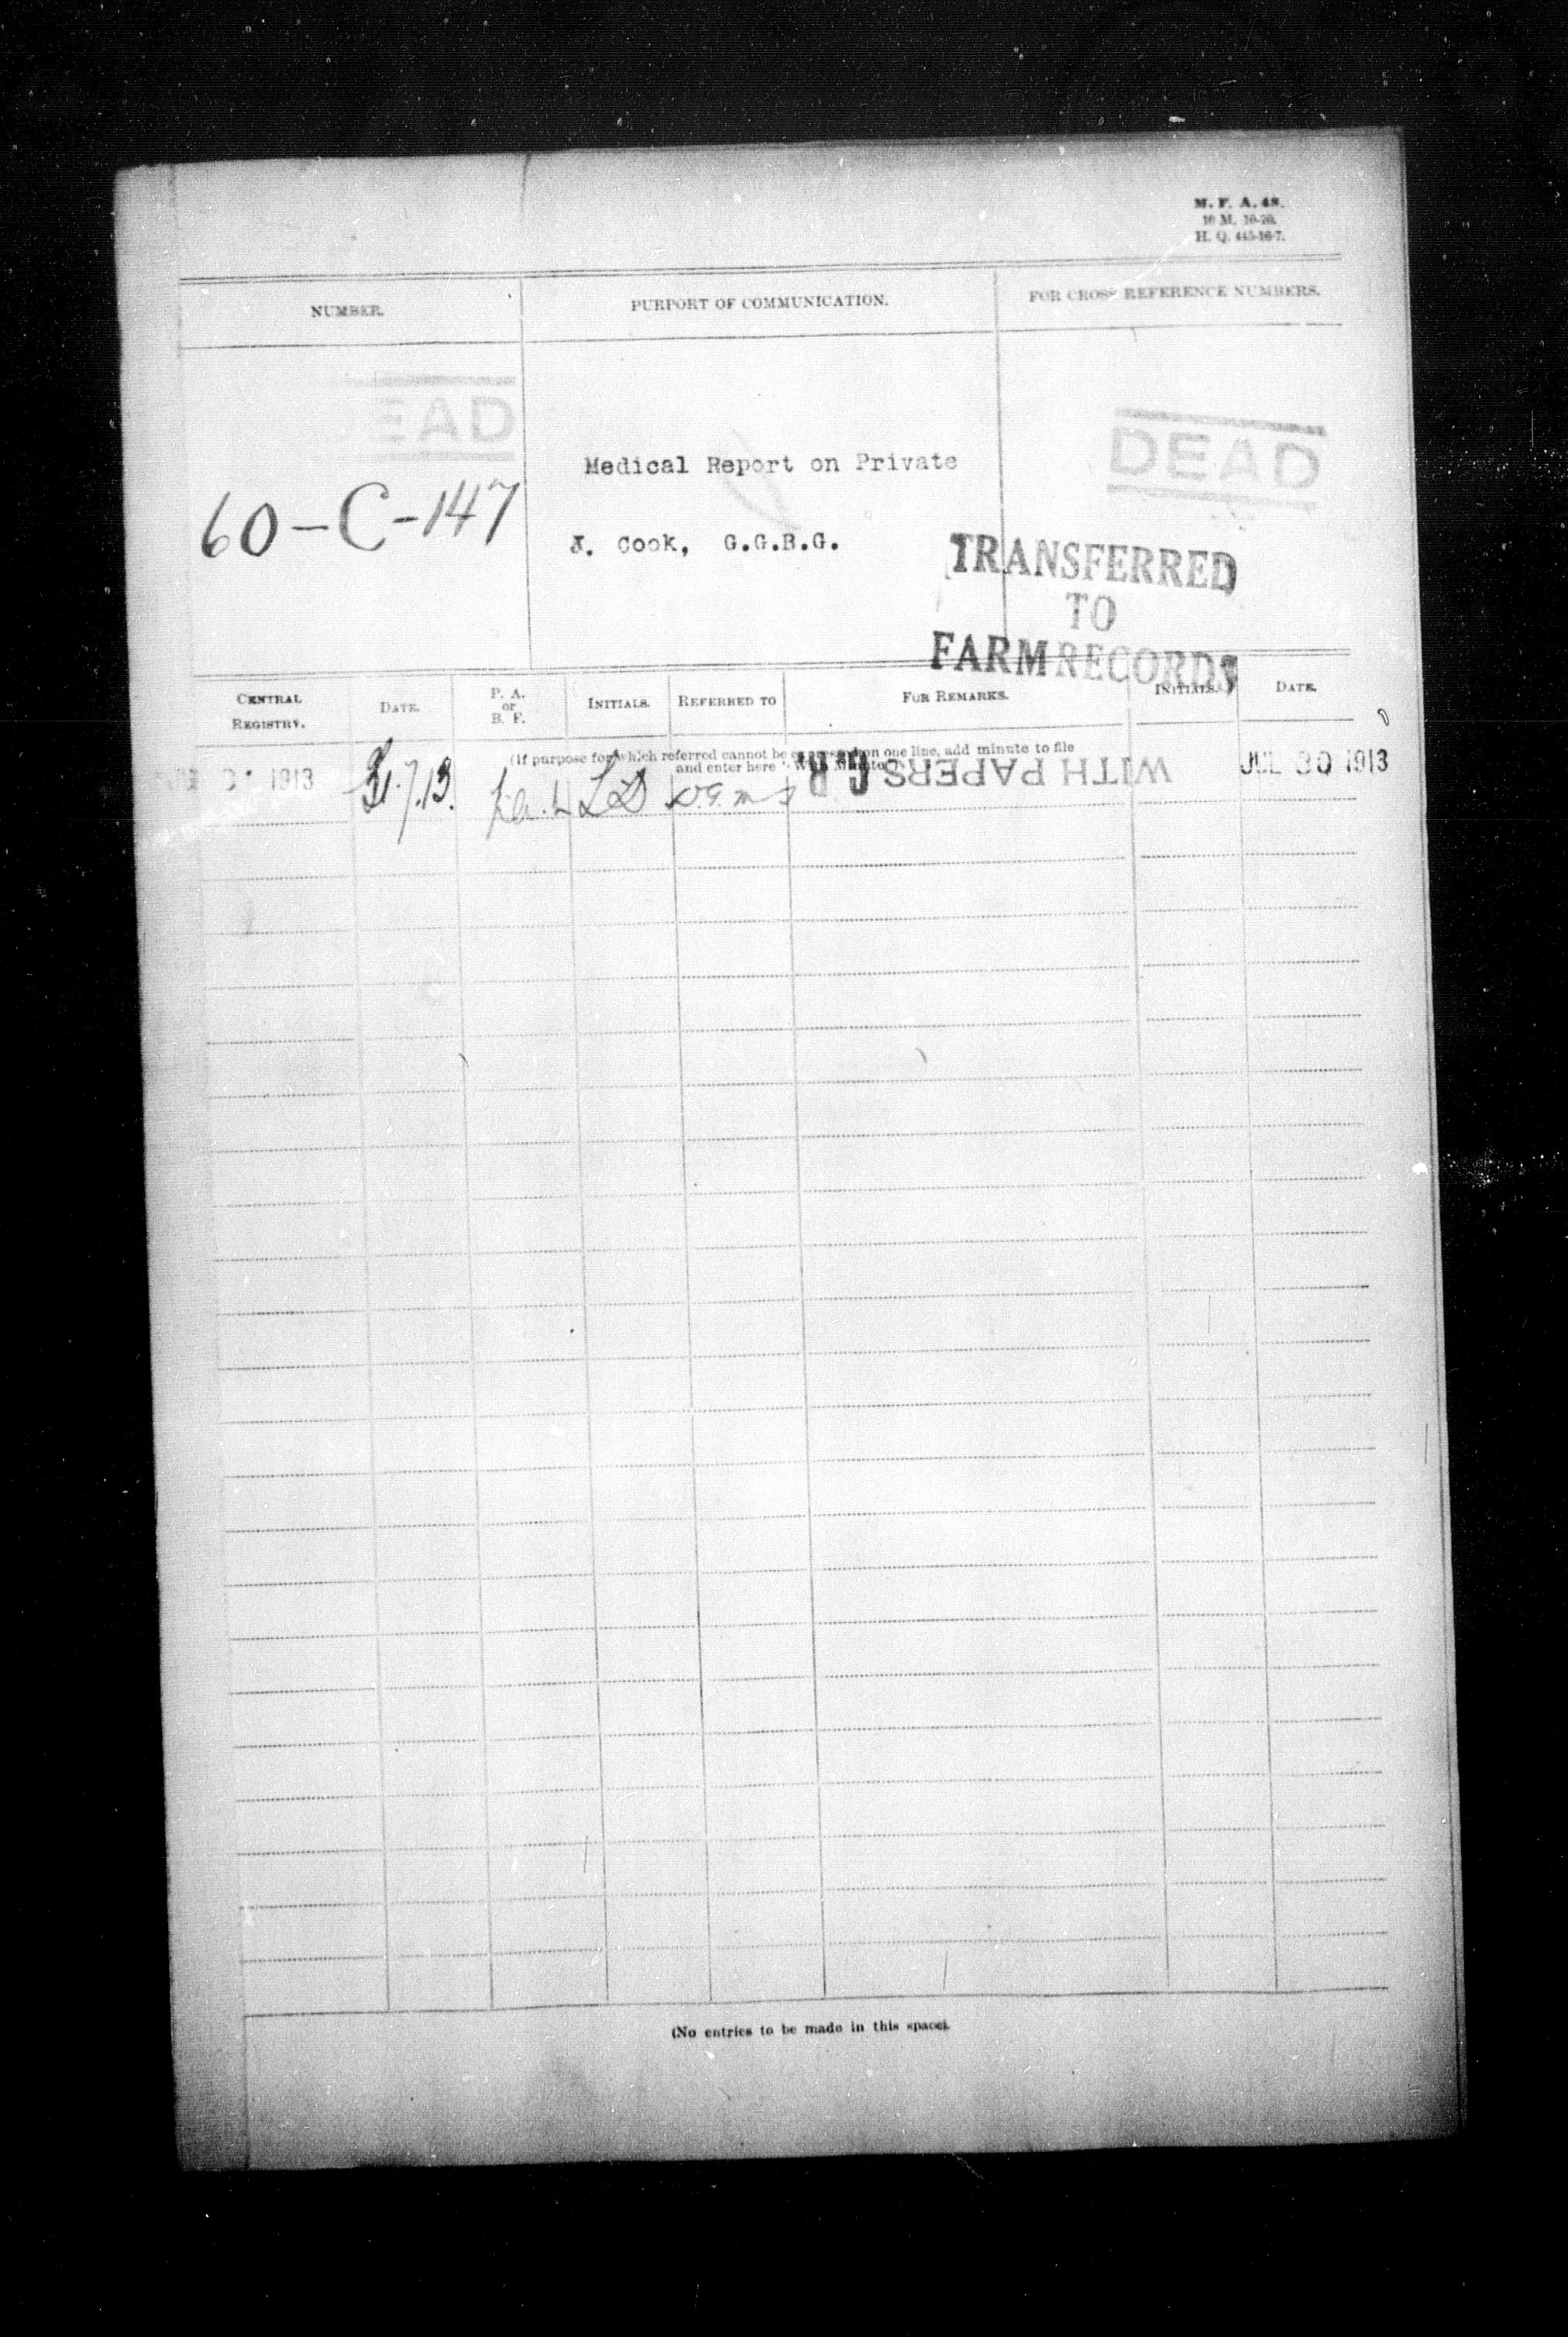 M. F. A. 48.
10 M. 10-20.
H. Q. 445-16-7.
NUMBER. PURPORT OF COMMUNICATION. FOR CROSS REFERENCE NUMBERS.
DEAD DEAD
60-C-147
Medical Report on Private
J. Cook, G.G.B.G.
TRANSFERRED
TO
FARM RECORDS
CENTRAL REGISTRY. DATE. P. A. or B. F. INITIALS. REFERRED TO FOR REMARKS. INITIALS. DATE.
(If purpose for which referred cannot be expressed on one line, add minute to file
and enter here "With Minute")
1913 31.7.13. WITH PAPERS JUL 30 1913
(No entries to be made in this space).